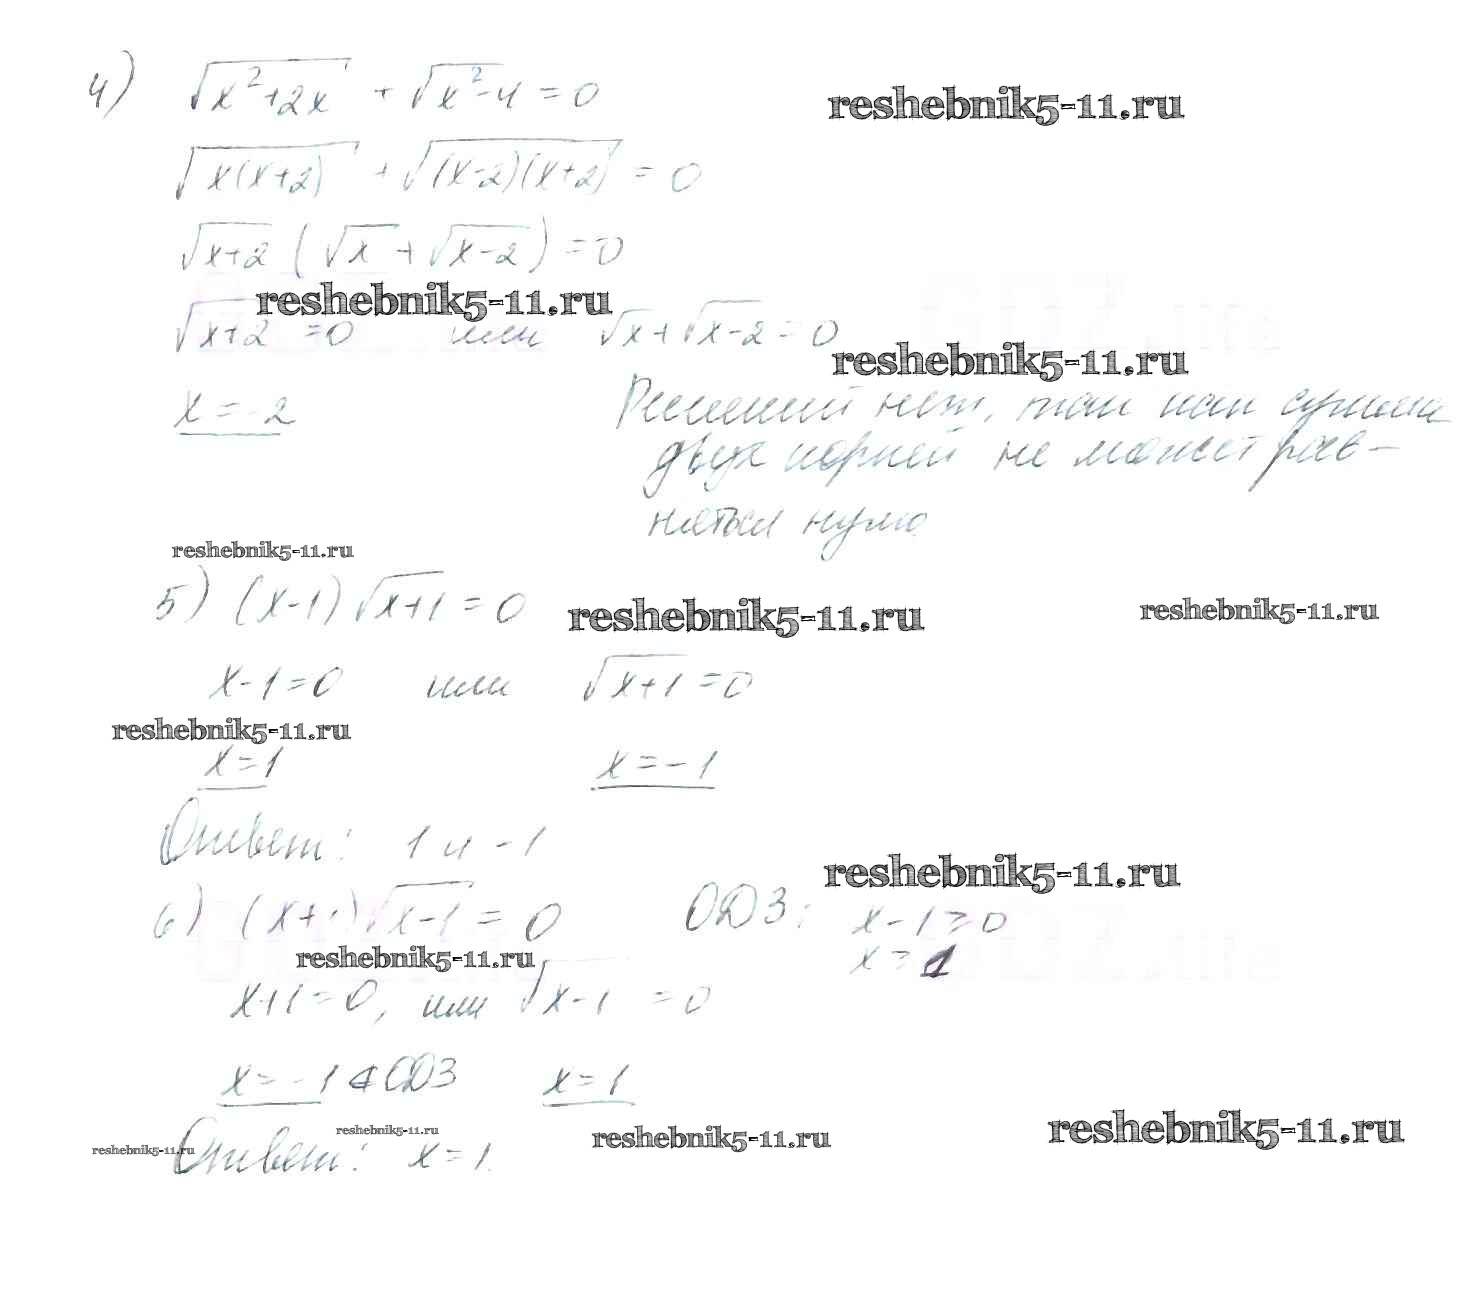 4) √(x²+2x) + √(x²-4) = 0
reshebnik5-11.ru
√(x(x+2)) + √((x-2)(x+2)) = 0
√(x+2) (√x + √(x-2)) = 0
reshebnik5-11.ru
√(x+2) = 0 или √x + √(x-2) = 0
reshebnik5-11.ru
x = -2
Решений нет, так как сумма
двух корней не может рав-
няться нулю.
reshebnik5-11.ru
5) (x-1) √(x+1) = 0
reshebnik5-11.ru
reshebnik5-11.ru
x-1=0 или √(x+1) = 0
reshebnik5-11.ru
x=1 x=-1
Ответ: 1 и -1
reshebnik5-11.ru
6) (x+1) √(x-1) = 0 ОДЗ: x-1≥0
reshebnik5-11.ru
x≥1
x+1=0, или √(x-1) = 0
x=-1 ∉ ОДЗ x=1
reshebnik5-11.ru
reshebnik5-11.ru
reshebnik5-11.ru
reshebnik5-11.ru
Ответ: x=1.